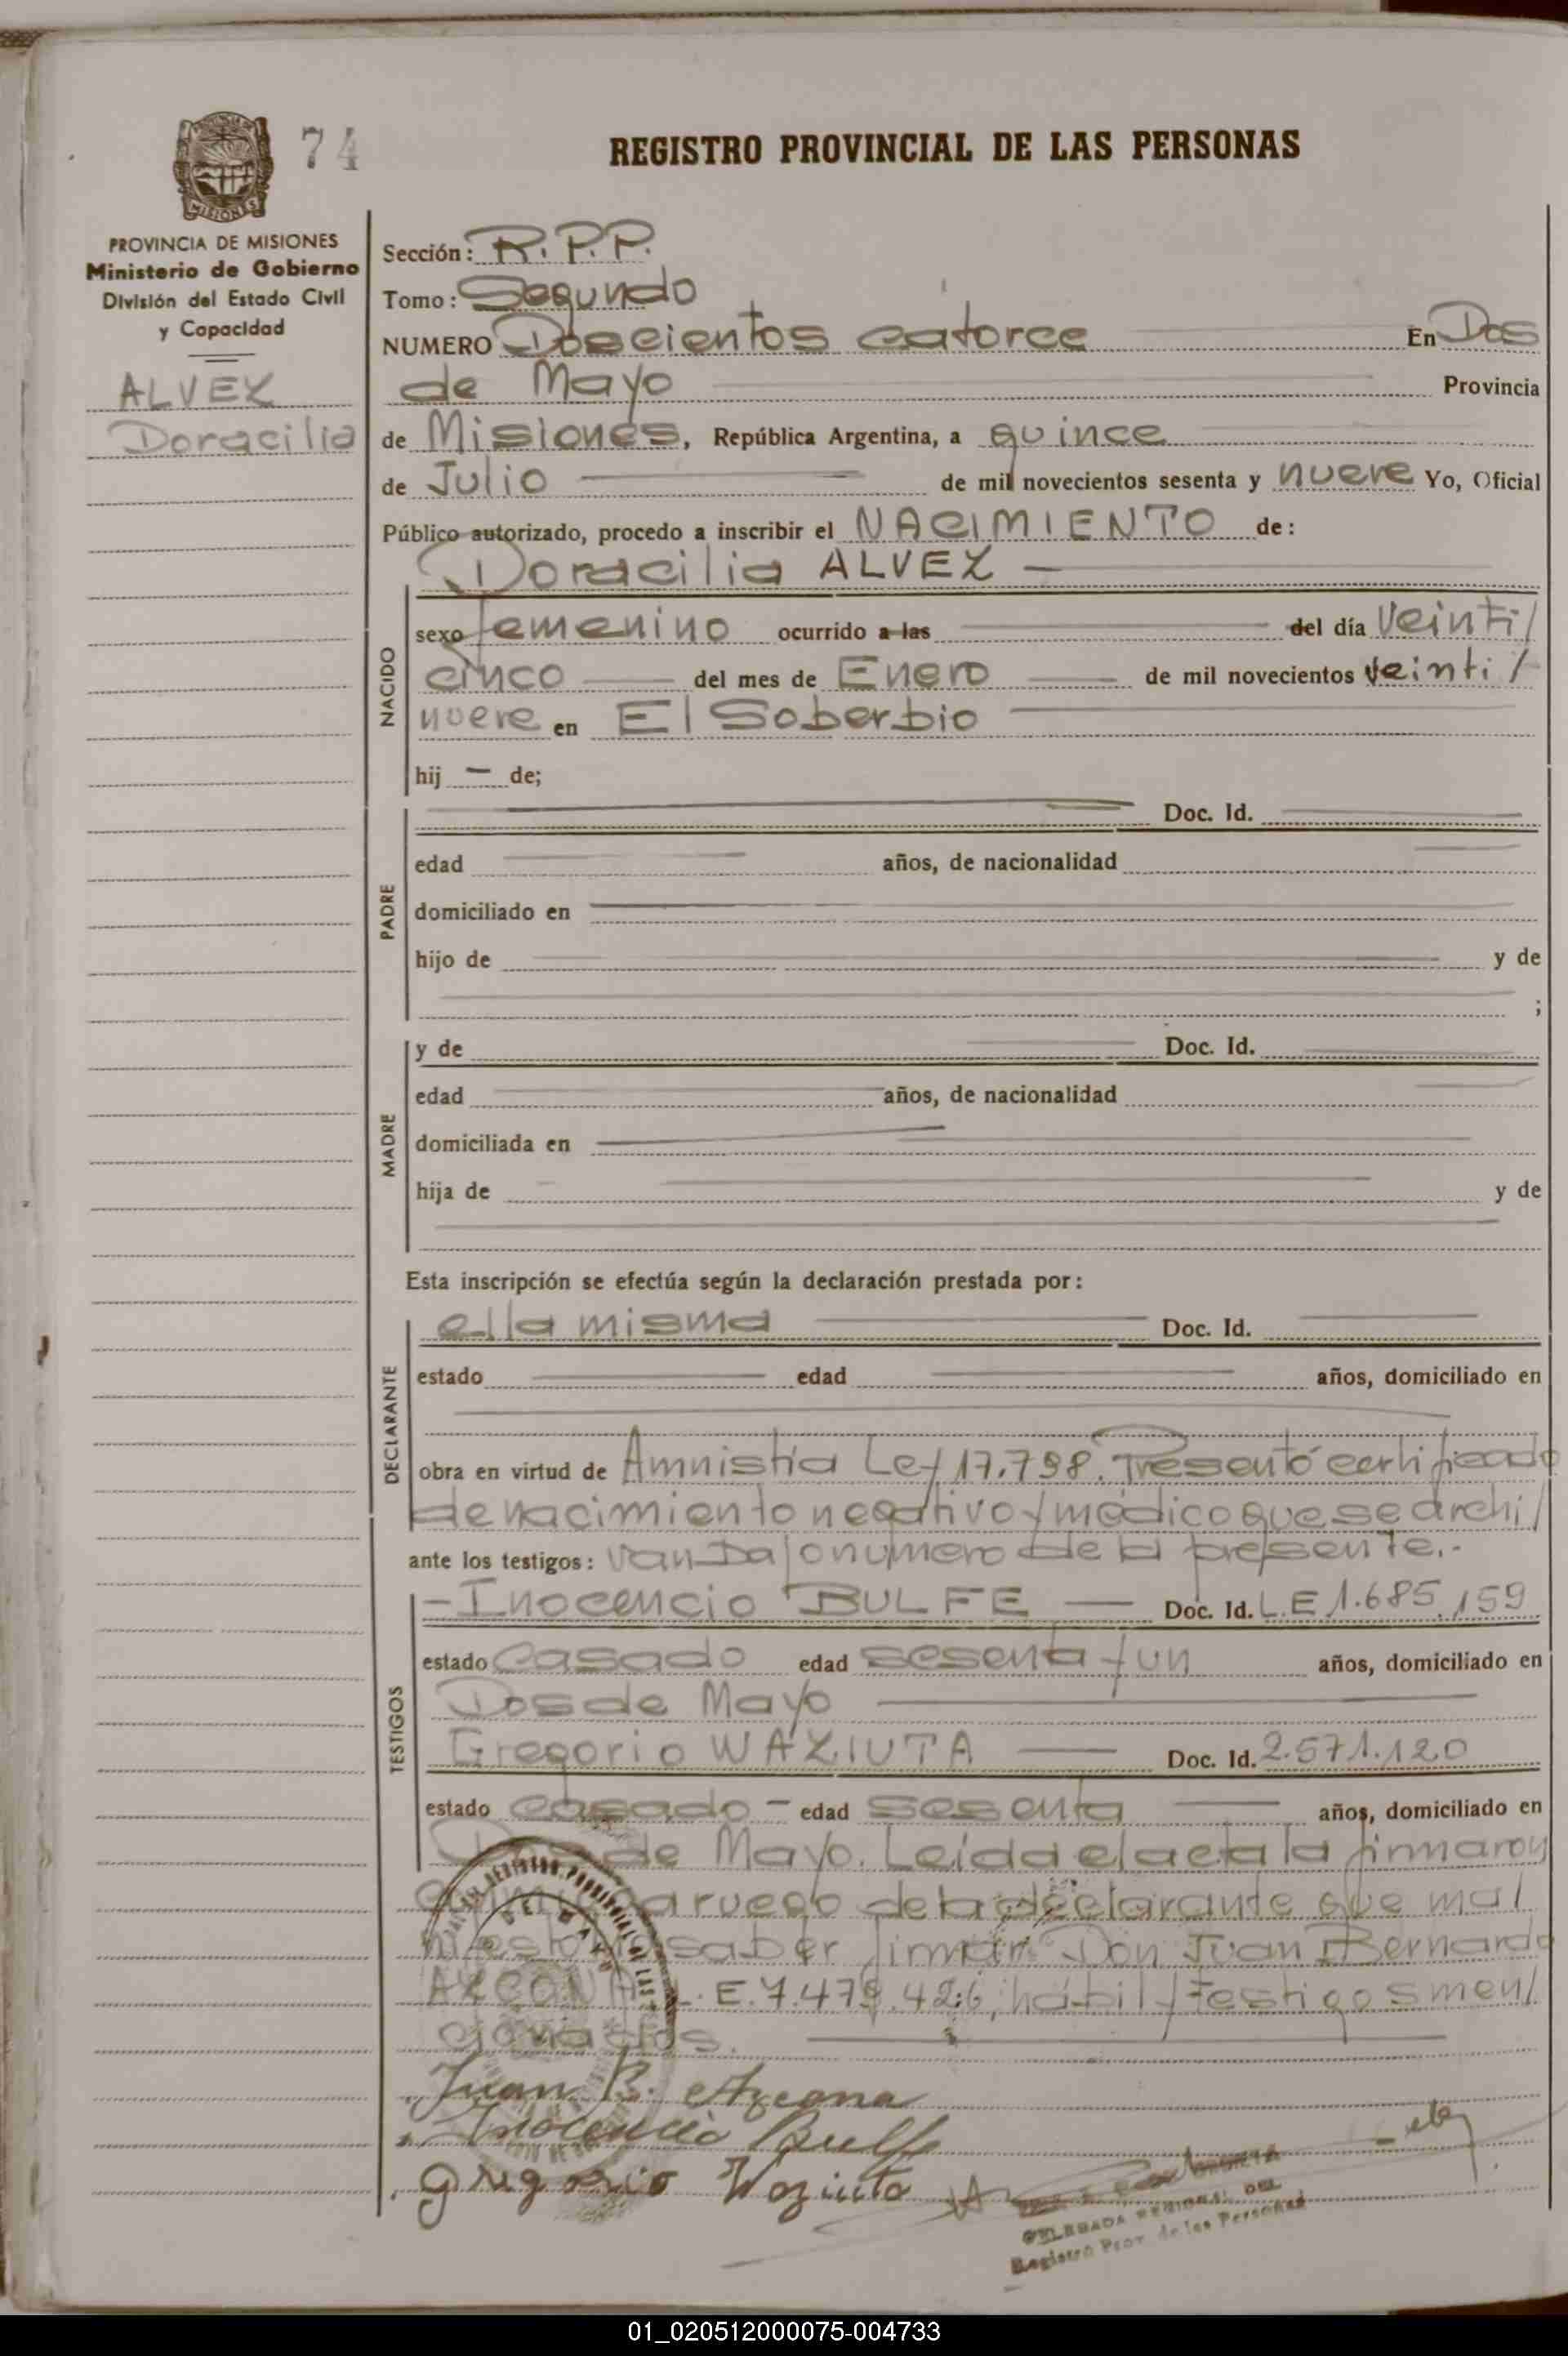 74
REGISTRO PROVINCIAL DE LAS PERSONAS
MISIONES
PROVINCIA DE MISIONES
Ministerio de Gobierno
División del Estado Civil
y Capacidad
ALVEZ
Doracilia
Sección: R.P.P.
Tomo: Segundo
NUMERO Doscientos catorce En Dos
de Mayo Provincia
de Misiones, República Argentina, a quince
de Julio de mil novecientos sesenta y nueve Yo, Oficial
Público autorizado, procedo a inscribir el NACIMIENTO de:
Doracilia ALVEZ —
NACIDO
sexo femenino ocurrido a las del día Veinti/
cinco del mes de Enero de mil novecientos veinti/
nueve en El Soberbio
hij — de;
PADRE
Doc. Id.
edad años, de nacionalidad
domiciliado en
hijo de y de
;
MADRE
y de Doc. Id.
edad años, de nacionalidad
domiciliada en
hija de y de
Esta inscripción se efectúa según la declaración prestada por:
DECLARANTE
ella misma Doc. Id.
estado edad años, domiciliado en
obra en virtud de Amnistía Ley 17.798. Presentó certificado
de nacimiento negativo y médico que se archi/
ante los testigos: van bajo número de la presente.-
TESTIGOS
-Inocencio BULFE — Doc. Id. L.E 1.685.159
estado casado edad sesenta y un años, domiciliado en
Dos de Mayo
Gregorio WAZIUTA — Doc. Id. 2.571.120
estado casado - edad sesenta años, domiciliado en
de Mayo. Leída el acta la firmaron
a ruego de la declarante que mal
saber firmar Don Juan Bernardo
AZCONA L.E.7.479.426, hábil y testigos men/
cionados.
Juan B. Azcona
Inocencio Bulfe
Gregorio Waziuta
DELEGADA REGIONAL DEL
Registro Prov. de las Personas
01_020512000075-004733